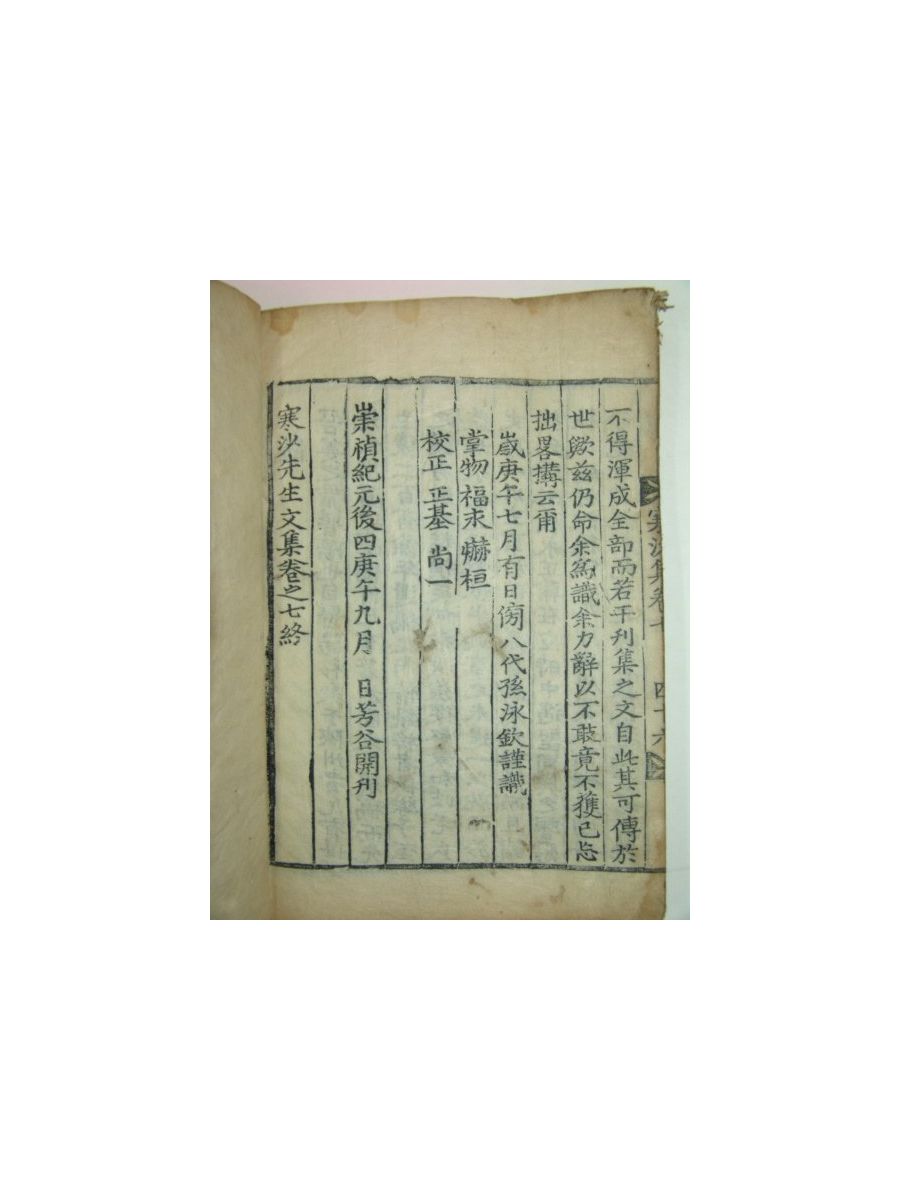 不得渾成全部而若干刊集之文自此其可傳於
世歟玆仍命余爲識余力辭以不敢竟不獲已忘
拙畧搆云爾
歲庚午七月有日傍八代孫泳欽謹識
掌物 福永 爀桓
校正 正基 尙一
崇禎紀元後四庚午九月 日芳谷開刊
寒沙先生文集卷之七終
寒沙集卷七 四十六